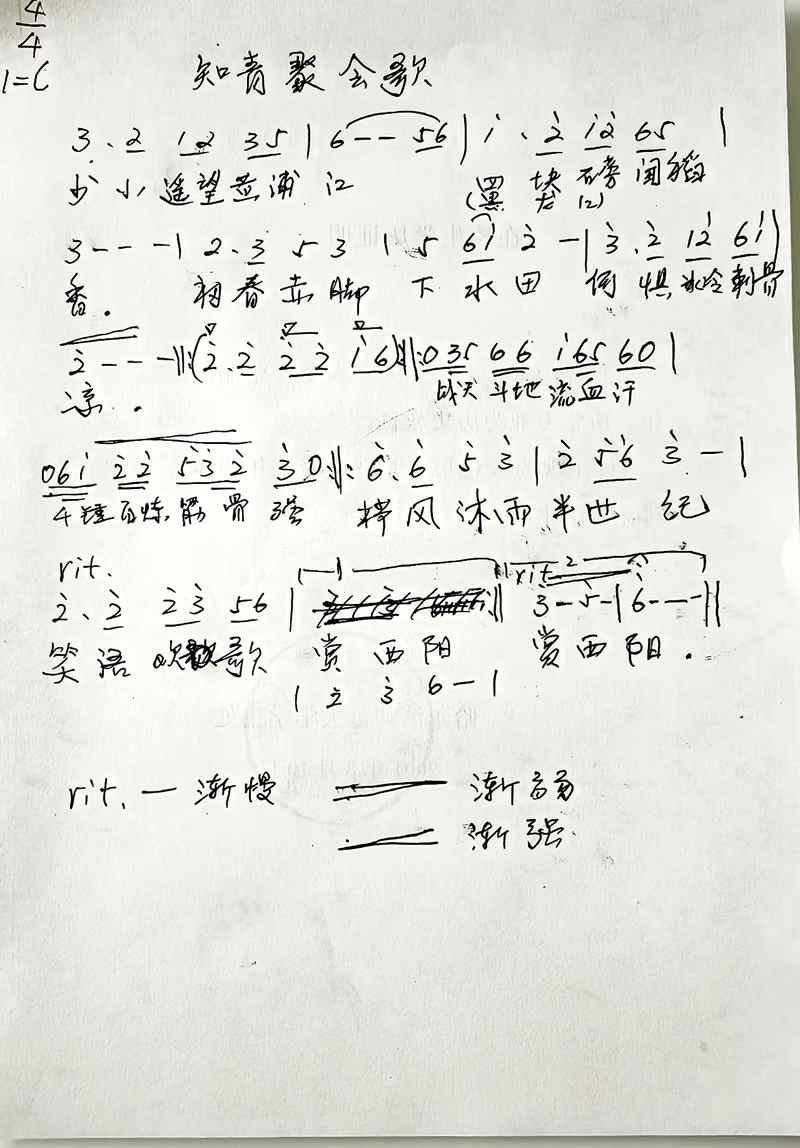 4/4
1=C 知青聚会歌
3 . 2 1 2 3 5 | 6 - - 5 6 | i . 2̇ i 2̇ 6 5 |
少小遥望 浦江 闻稻
(黑龙江)
3 - - - | 2 . 3 5 3 | 5 6 i 2̇ - | 3̇ . 2̇ i 2̇ 6 i |
香。 初春赤脚 下水田 何惧冰冷刺骨
2̇ - - - ‖: (2̇ . 2̇ 2̇ 2̇ i 6) :‖: 0 3 5 6 6 i 6 5 6 0 |
凉。 战天斗地流血汗
0 6 i 2̇ 2̇ 5̇ 3̇ 2̇ 3̇ 0 :‖: 6̇ . 6̇ 5̇ 3̇ | 2̇ 5̇ 6̇ 3̇ - |
4锤百炼筋骨强 栉风沐雨半世纪
rit. 1 rit 2
2̇ . 2̇ 2̇ 3̇ 5 6 | 3̇ - 5̇ - | 6̇ - - - ‖
笑语 歌 赏西阳 赏西阳。
| 2̇ 3̇ 6 - |
rit. — 渐慢 渐弱
渐强